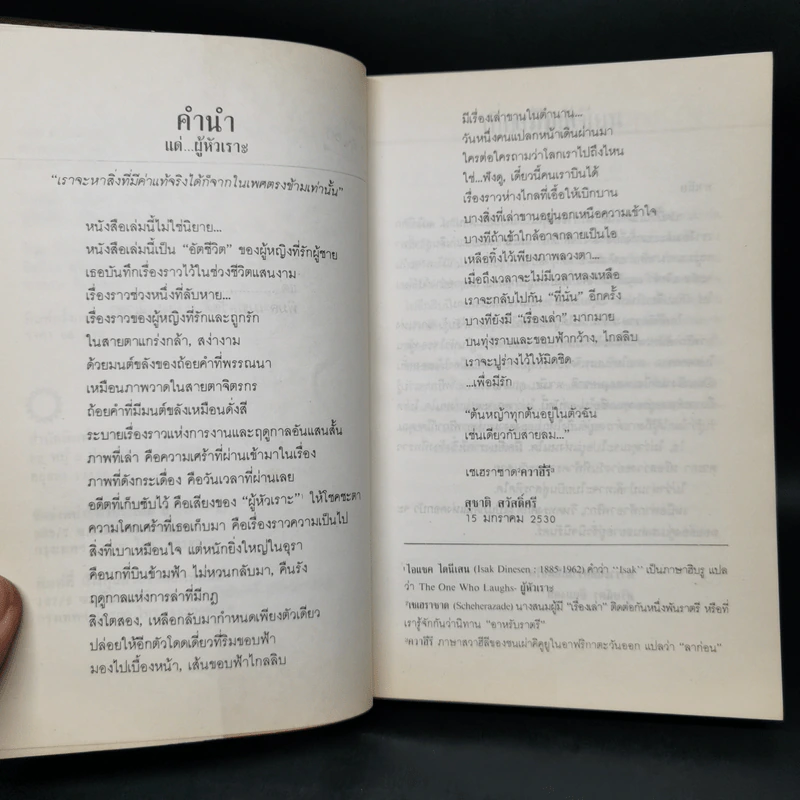 คำนำ
แด่...ผู้หัวเราะ
"เราจะหาสิ่งที่มีค่าแท้จริงได้ก็จากในเพศตรงข้ามเท่านั้น"
หนังสือเล่มนี้ไม่ใช่นิยาย...
หนังสือเล่มนี้เป็น "อัตชีวิต" ของผู้หญิงที่รักผู้ชาย
เธอบันทึกเรื่องราวไว้ในช่วงชีวิตแสนงาม
เรื่องราวช่วงหนึ่งที่ลับหาย...
เรื่องราวของผู้หญิงที่รักและถูกรัก
ในสายตาแกร่งกล้า, สง่างาม
ด้วยมนต์ขลังของถ้อยคำที่พรรณนา
เหมือนภาพวาดในสายตาจิตรกร
ถ้อยคำที่มีมนต์ขลังเหมือนดั่งสี
ระบายเรื่องราวแห่งการงานและฤดูกาลอันแสนสั้น
ภาพที่เล่า คือความเศร้าที่ผ่านเข้ามาในเรื่อง
ภาพที่ดังกระเดื่อง คือวันเวลาที่ผ่านเลย
อดีตที่เก็บซับไว้ คือเสียงของ "ผู้หัวเราะ"¹ ให้โชคชะตา
ความโศกเศร้าที่เธอเก็บมา คือเรื่องราวความเป็นไป
สิ่งที่เบาเหมือนใจ แต่หนักยิ่งใหญ่ในอุรา
คือนกที่บินข้ามฟ้า ไม่หวนกลับมา, คืนรัง
ฤดูกาลแห่งการล่าที่มีกฎ
สิงโตสอง, เหลือกลับมากำหนดเพียงตัวเดียว
ปล่อยให้อีกตัวโดดเดี่ยวที่ริมขอบฟ้า
มองไปเบื้องหน้า, เส้นขอบฟ้าไกลลิบ
มีเรื่องเล่าขานในตำนาน...
วันหนึ่งคนแปลกหน้าเดินผ่านมา
ใครต่อใครถามว่าโลกเราไปถึงไหน
ใช่...ฟังดู, เดี๋ยวนี้คนเราบินได้
เรื่องราวห่างไกลที่เอื้อให้เบิกบาน
บางสิ่งที่เล่าขานอยู่นอกเหนือความเข้าใจ
บางทีถ้าเข้าใกล้อาจกลายเป็นไอ
เหลือทิ้งไว้เพียงภาพลวงตา...
เมื่อถึงเวลาจะไม่มีเวลาหลงเหลือ
เราจะกลับไปกัน "ที่นั่น" อีกครั้ง
บางทียังมี "เรื่องเล่า" มากมาย
บนทุ่งราบและขอบฟ้ากว้าง, ไกลลิบ
เราจะปูร่างไว้ให้มิดชิด
...เพื่อมีรัก
"ต้นหญ้าทุกต้นอยู่ในตัวฉัน
เช่นเดียวกับสายลม..."
เชเฮราซาด² ควาฮีรี³
สุชาติ สวัสดิ์ศรี
15 มกราคม 2530
¹ไอแซค ไดนีเสน (Isak Dinesen : 1885-1962) คำว่า "Isak" เป็นภาษาฮิบรู แปล
ว่า The One Who Laughs- ผู้หัวเราะ
²เชเฮราซาด (Scheherazade) นางสนมผู้มี "เรื่องเล่า" ติดต่อกันหนึ่งพันราตรี หรือที่
เรารู้จักกันว่านิทาน "อาหรับราตรี"
³ควาฮีรี ภาษาสวาฮิลีของชนเผ่าคิคูยูในอาฟริกาตะวันออก แปลว่า "ลาก่อน"